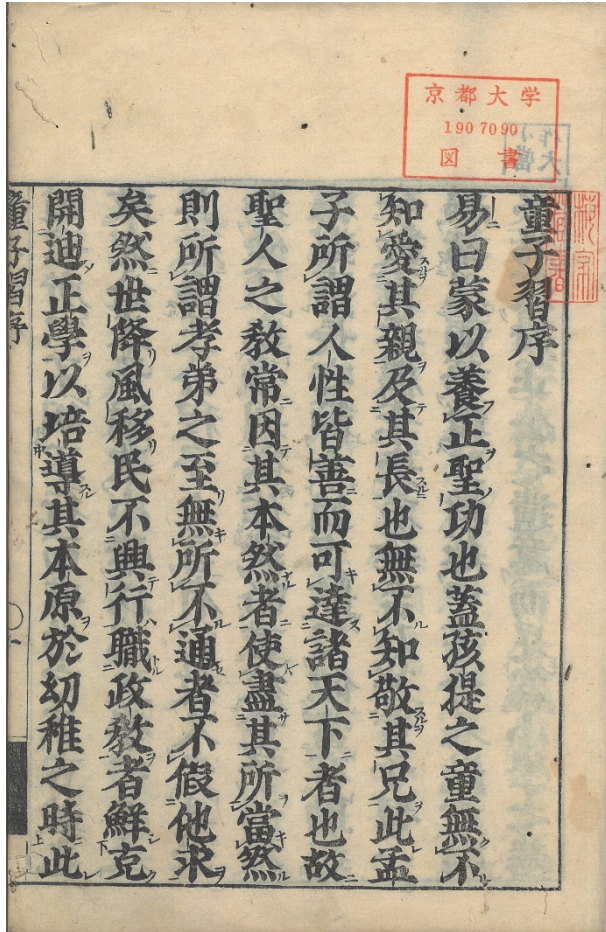 京都大学
1907090
図書
童子習序
易曰蒙以養正聖功也蓋孩提之童無不
知愛其親及其長也無不知敬其兄此孟
子所謂人性皆善而可達諸天下者也故
聖人之教常因其本然者使盡其所當然
則所謂孝弟之至無所不通者不假他求
矣然世降風移民不興行職政教者鮮克
開迪正學以培導其本原於幼稚之時此
童子習序
一